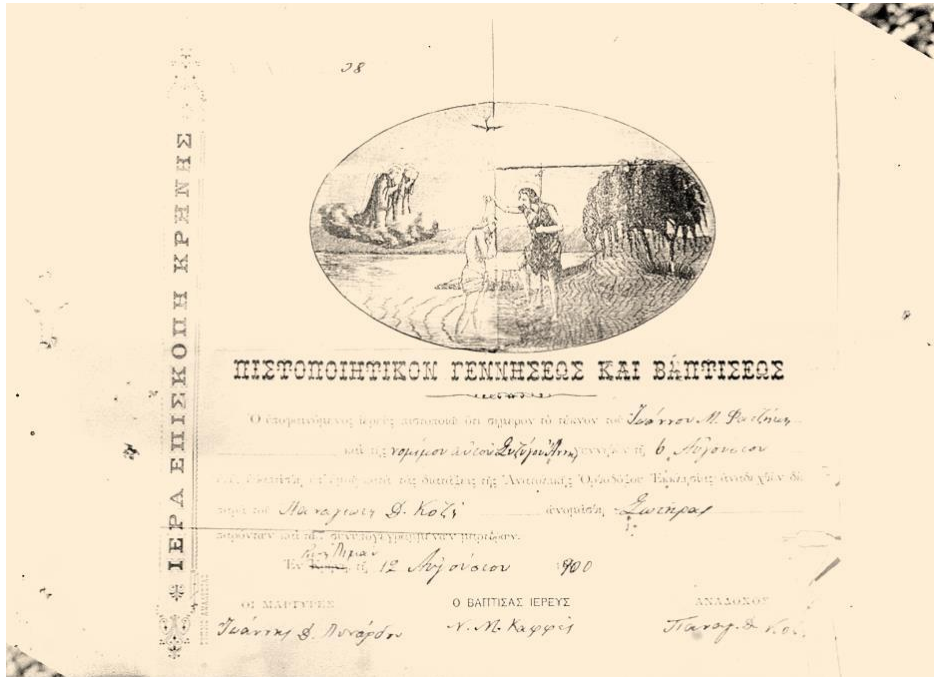 38
ΙΕΡΑ ΕΠΙΣΚΟΠΗ ΚΡΗΝΗΣ
ΠΙΣΤΟΠΟΙΗΤΙΚΟΝ ΓΕΝΝΗΣΕΩΣ ΚΑΙ ΒΑΠΤΙΣΕΩΣ
Ὁ ὑποφαινόμενος ἱερεὺς πιστοποιῶ ὅτι σήμερον τὸ τέκνον τοῦ Ἰωάννου Μ.
καὶ τῆς νομίμου αὐτοῦ Συζύγου Ἄννης γεννηθὲν τῇ 6 Αὐγούστου
κατὰ τὰς διατάξεις τῆς Ἀνατολικῆς Ὀρθοδόξου Ἐκκλησίας ἀναδεχθὲν δὲ
παρὰ τοῦ Παναγιώτη Δ. Κοζῆ ὠνομάσθη
παρόντων καὶ τῶν συνυπογεγραμμένων μαρτύρων.
Ἐν τῇ 12 Αὐγούστου 1900
ΟΙ ΜΑΡΤΥΡΕΣ Ο ΒΑΠΤΙΣΑΣ ΙΕΡΕΥΣ ΑΝΑΔΟΧΟΣ
Ἰωάννης Δ. Ν. Μ. Καφφὲς Παναγ. Δ.